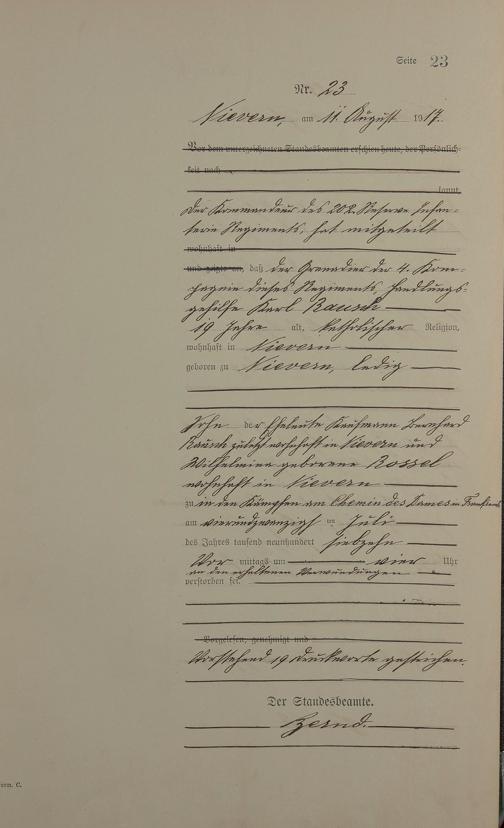 Seite 23
Nr. 23
Nievern, am 11. August 1917.
Vor dem unterzeichneten Standesbeamten erschien heute, der Persönlich-
keit nach
kannt,
Der Kommandeur des 202. Reserve Infan-
terie Regiments, hat mitgeteilt
wohnhaft in
und zeigte an, daß der Grenadier der 4. Kom-
pagnie dieses Regiments, Handlungs-
gehilfe Karl Rausch
19 Jahre alt, katholischer Religion,
wohnhaft in Nievern
geboren zu Nievern, ledig
Sohn der Eheleute Kaufmann Bernhard
Rausch zuletzt wohnhaft in Nievern und
Wilhelmina geborene Rossel
wohnhaft in Nievern
zu in den Kämpfen am Chemin des Dames in Frankreich
am vierundzwanzigsten Juli
des Jahres tausend neunhundert siebzehn
Vor mittags um vier Uhr
an den erhaltenen Verwundungen
verstorben sei.
Vorgelesen, genehmigt und
Vorstehend 19 Druckworte gestrichen.
Der Standesbeamte.